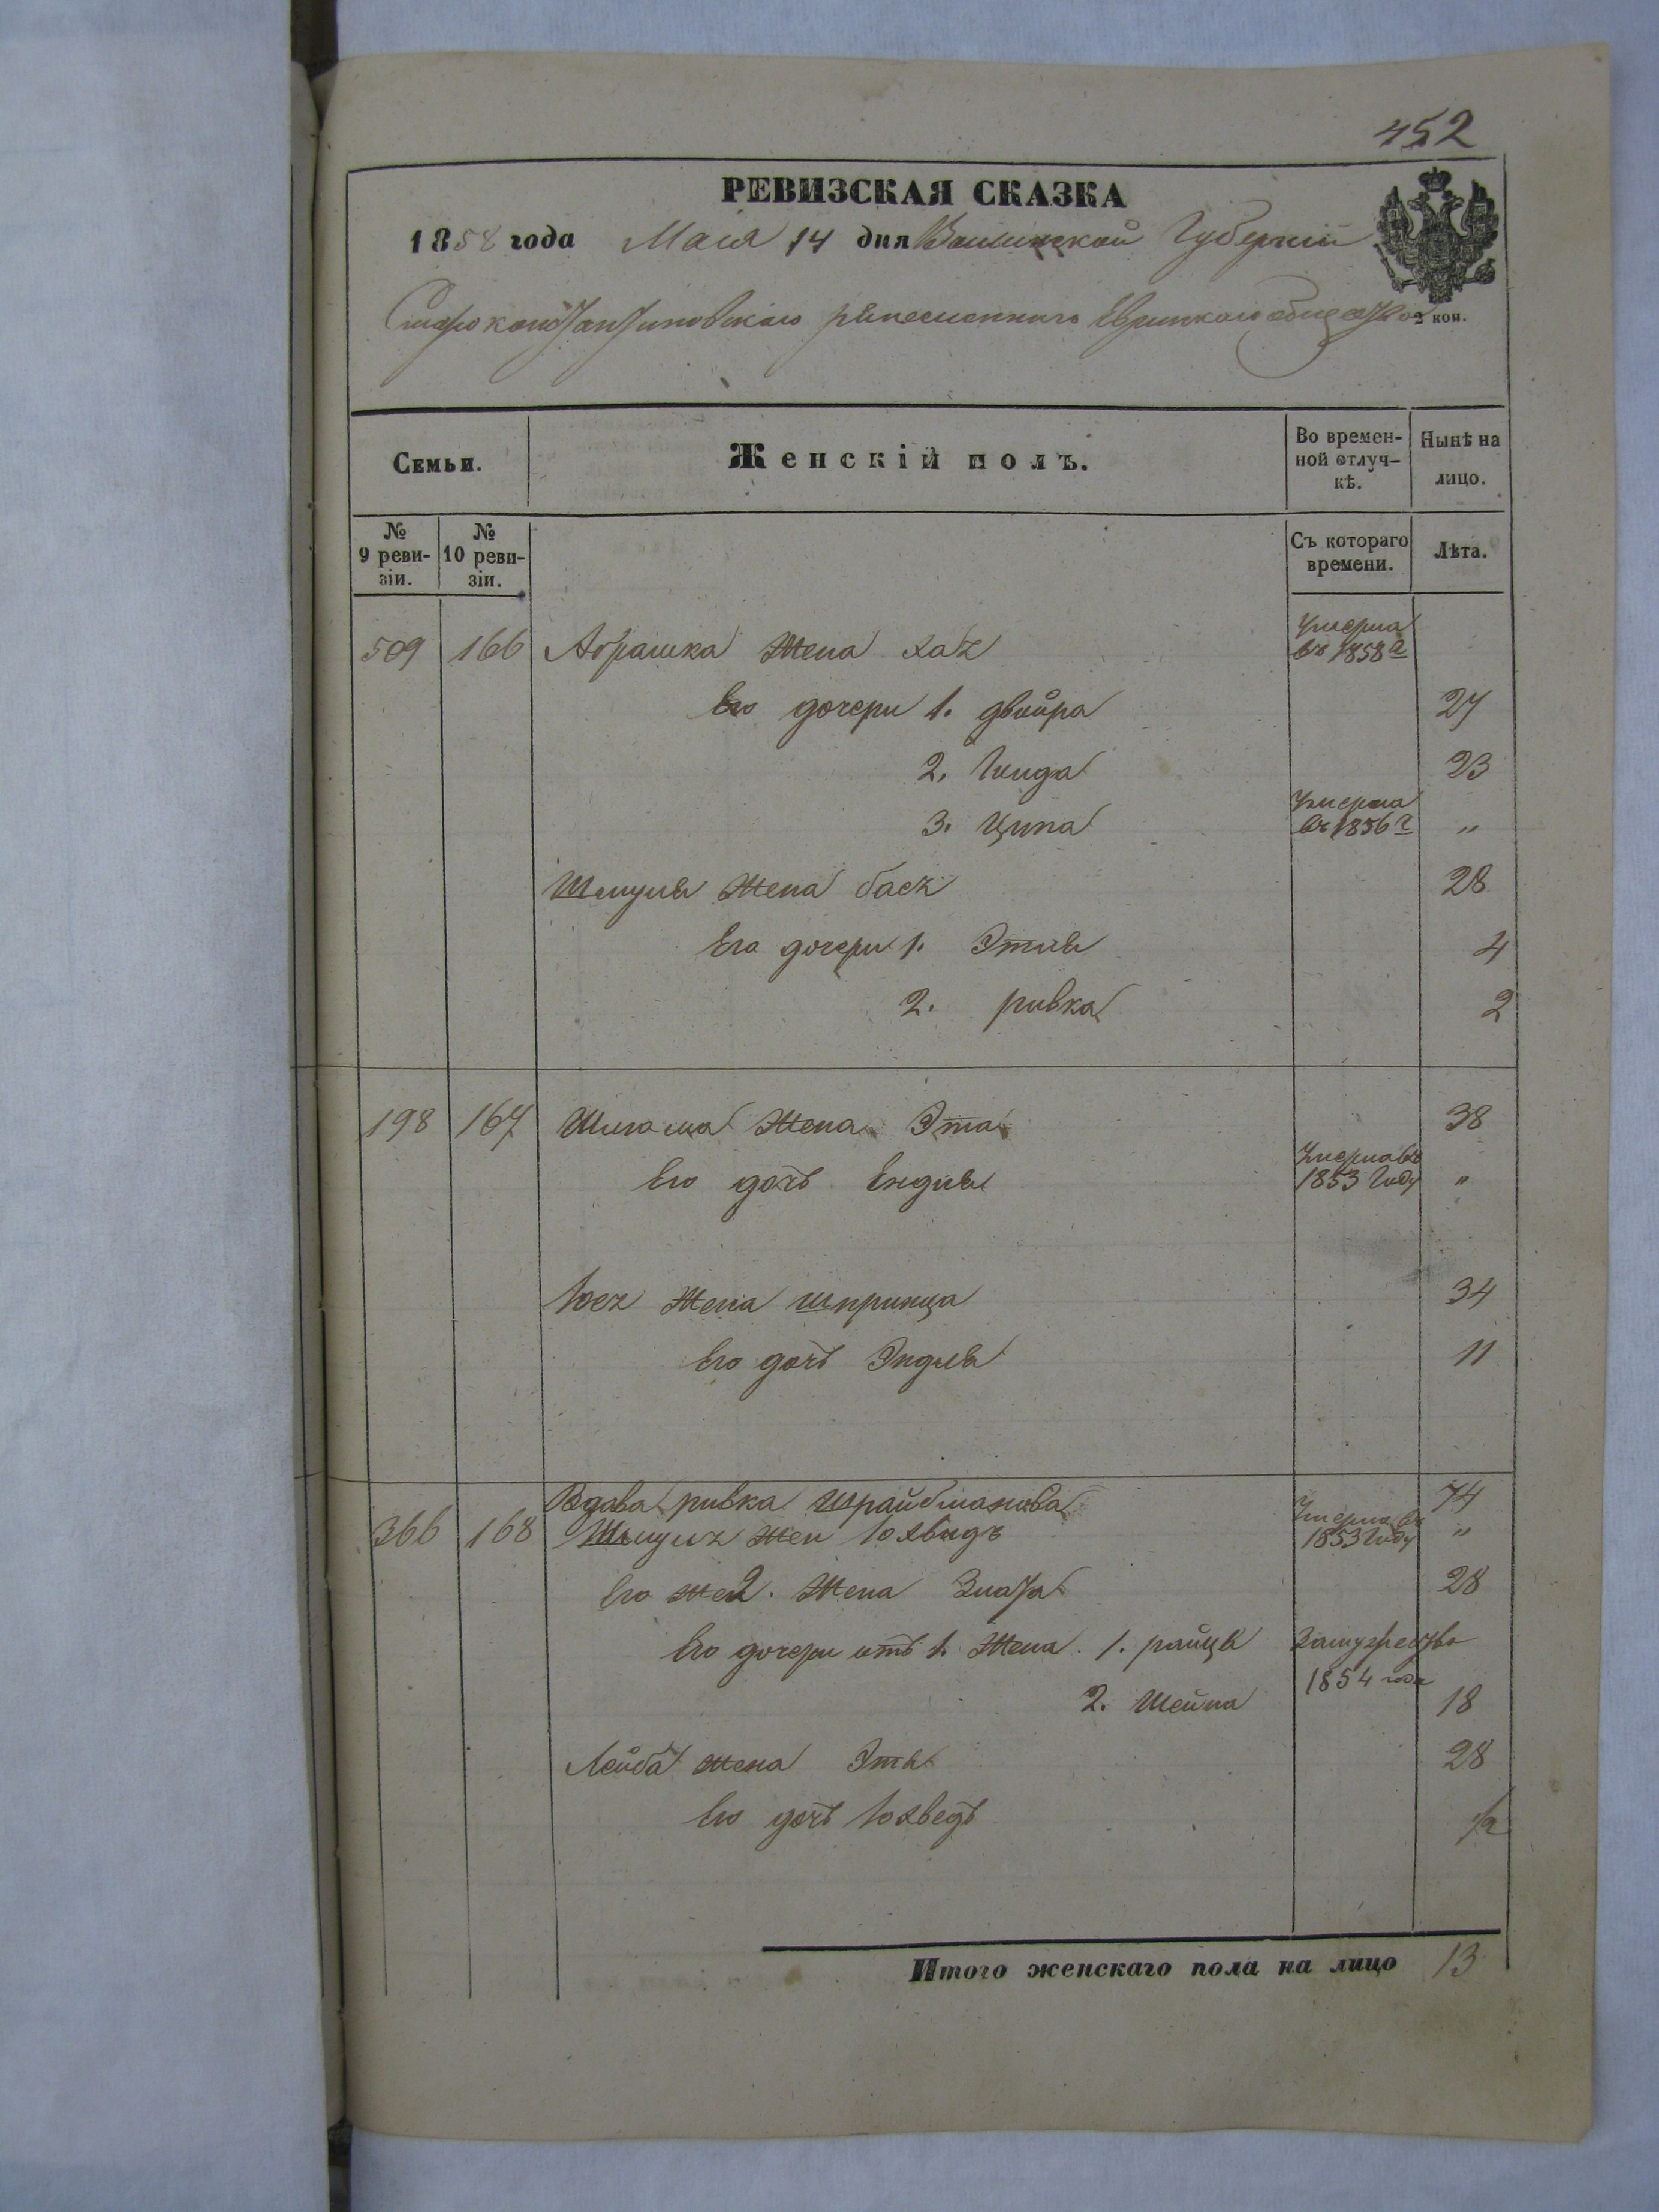 452
РЕВИЗСКАЯ СКАЗКА
1858 года Маия 14 дня Волынской Губернии
Староконстантиновского ремесленного Еврейского общества
3 коп.
Семьи. Женскій полъ. Во времен-ной отлуч-кѣ. Нынѣ на лицо.
№ 9 реви-зіи. № 10 реви-зіи. Съ котораго времени. Лѣта.
509 166 Абрашка Жена Хая Умерла въ 1858 г
Его дочери 1. двойра 27
2. Гинда 23
3. Ципа Умерла въ 1856 г "
Шмуля Жена бася 28
Его дочери 1. Этля 4
2. ривка 2
198 167 Жена Эта 38
Его дочь Ендля Умерла въ 1853 Году "
Жена шпринца 34
Его дочь Эндля 11
Вдова ривка Шрайбманова 74
366 168 Шмуля жен Юхвидъ Умерла въ 1853 Году "
Его 2. Жена Злота 28
Его дочери отъ 1. Жена 1. райця Замужество 1854 года
2. Шейна 18
Лейба жена Эти 28
Его дочь Юхведъ 1/2
Итого женскаго пола на лицо 13